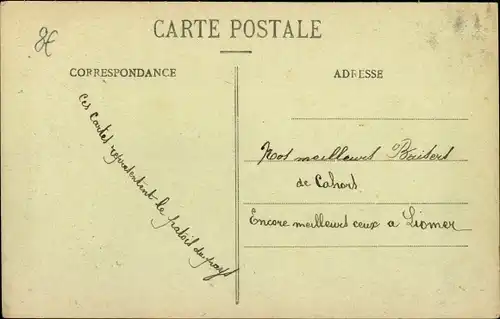 CARTE POSTALE
CORRESPONDANCE
ADRESSE
Ces cartes representent le patois du pays
Nos meilleurs Baisers
de Cahors
Encore meilleurs ceux a Liomer